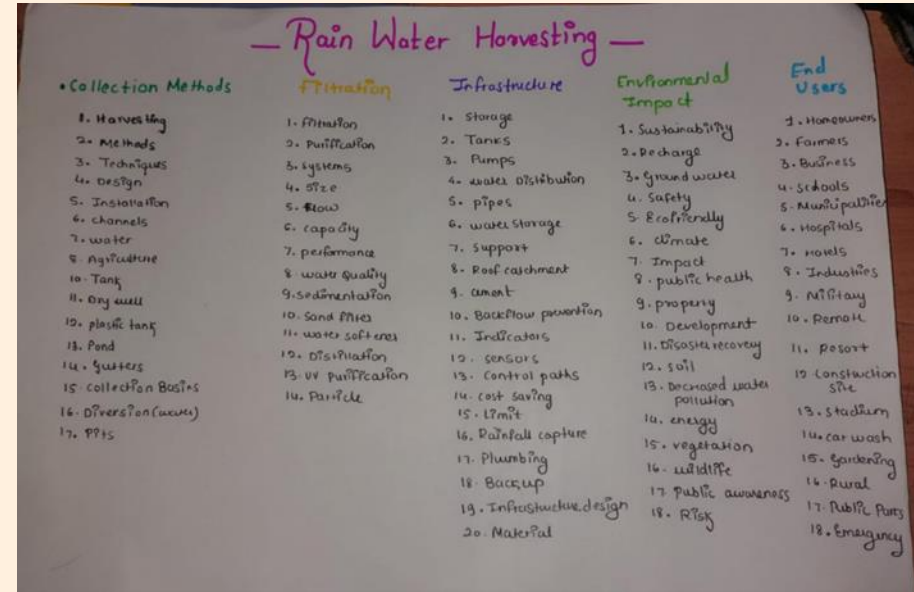 — Rain Water Harvesting —
• Collection Methods
1. Harvesting
2. Methods
3. Techniques
4. Design
5. Installation
6. channels
7. water
8. Agriculture
10. Tank
11. Dry well
12. plastic tank
13. Pond
14. Gutters
15. Collection Basins
16. Diversion (water)
17. Pits
Filtration
1. Filtration
2. Purification
3. systems
4. Size
5. Flow
6. capacity
7. performance
8. water quality
9. sedimentation
10. Sand
11. water softener
12. Distillation
13. UV purification
14. Particle
Infrastructure
1. Storage
2. Tanks
3. Pumps
4. water Distribution
5. pipes
6. water storage
7. Support
8. Roof catchment
9. cement
10. Backflow prevention
11. Indicators
12. sensors
13. Control paths
14. cost saving
15. Limit
16. Rainfall capture
17. Plumbing
18. Backup
19. Infrastructure design
20. Material
Environmental
Impact
1. Sustainability
2. Recharge
3. Ground water
4. Safety
5. Ecofriendly
6. climate
7. Impact
8. public health
9. property
10. Development
11. Disaster recovery
12. soil
13. Decreased water
pollution
14. energy
15. vegetation
16. wildlife
17. Public awareness
18. Risk
End
Users
1. Homeowners
2. Farmers
3. Business
4. schools
5. Municipalities
6. Hospitals
7. Hotels
8. Industries
9. Military
10. Remote
11. Resort
12. Construction
site
13. Stadium
14. car wash
15. Gardening
16. Rural
17. Public
18. Emergency